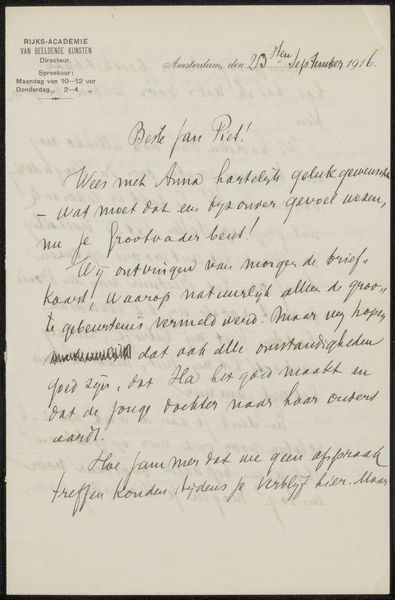 RIJKS-ACADEMIE
VAN BEELDENDE KUNSTEN
Directeur.
Spreekuur:
Maandag van 10–12 uur
Donderdag „ 2–4 „
Amsterdam, den 23sten September 1916.
Beste Jan Piet!
Wees met Anna hartelijk gelukgewenscht
– wat moet dat een byzonder gevoel wezen,
nu je Grootvader bent!
Wy ontvingen van morgen de brief-
kaart, waarop natuurlyk alleen de groo-
te gebeurtenis vermeld werd. Maar wy hopen
dat ook alle omstandigheden
goed zijn, dat Ha het goed maakt en
dat de jonge dochter naar haar ouders
aardt.
Hoe jammer dat we geen afspraak
treffen konden, tydens je verblyf hier. Maar